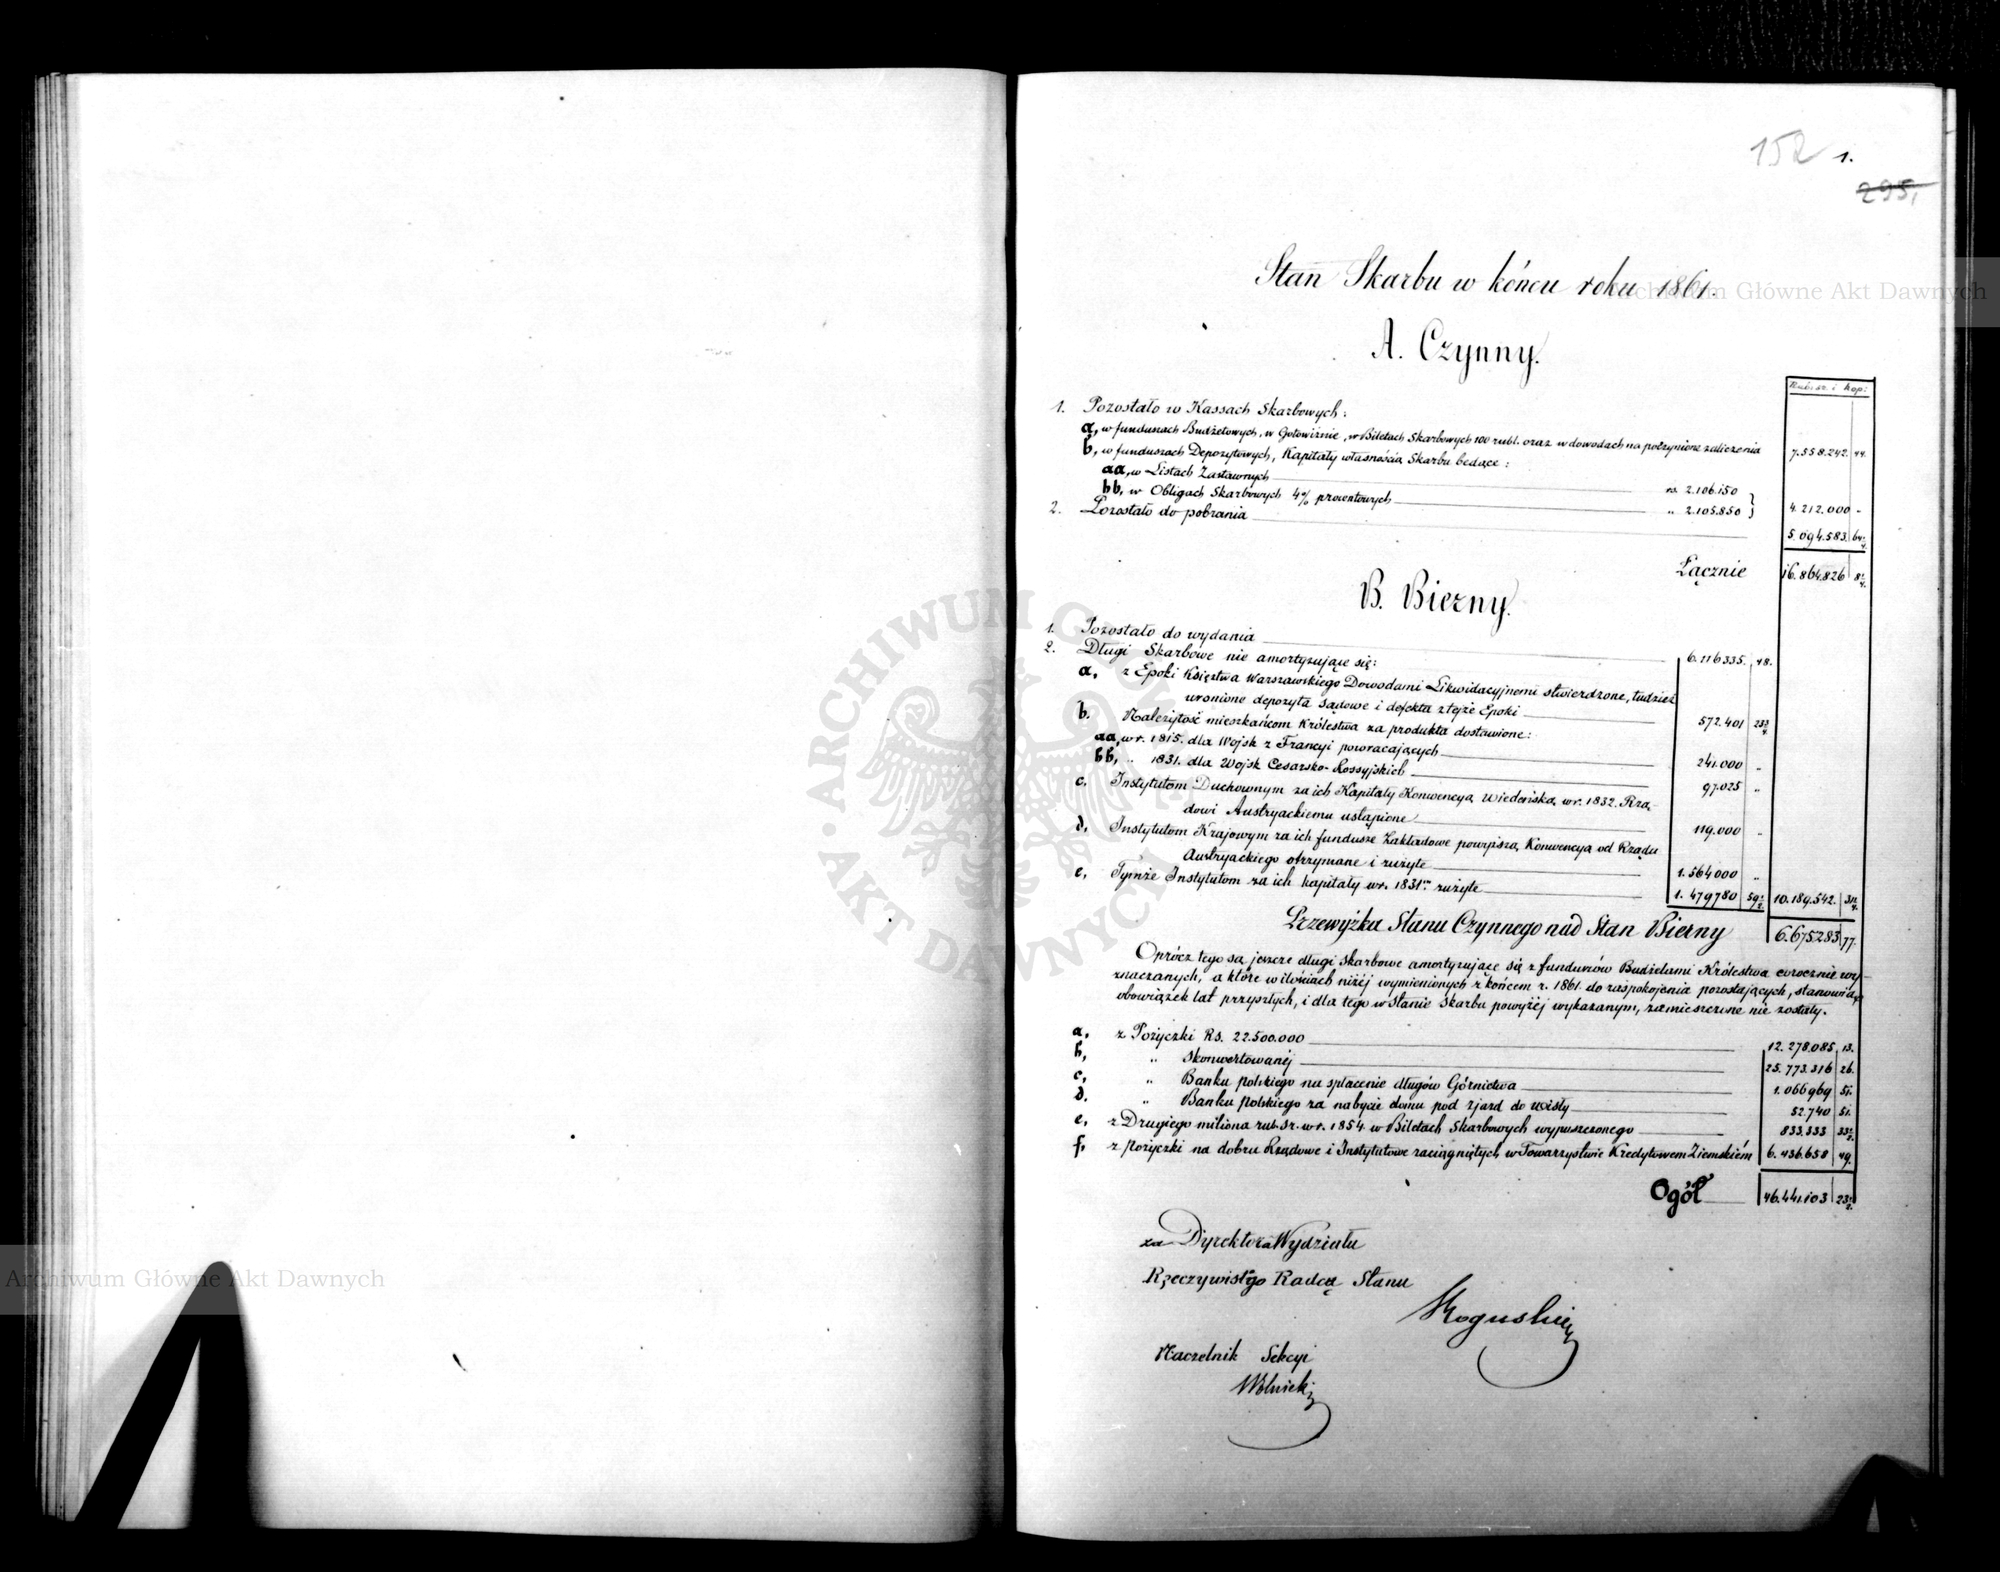 152 1.
295,
Stan Skarbu w końcu roku 1861.
A. Czynny.
Rub. sr. i kop:
1. Pozostało w Kassach Skarbowych:
a, w funduszach Budżetowych, w Gotowiźnie, w Biletach Skarbowych 100 rubl. oraz w dowodach na poczynione zaliczenia 7.558.242. 44.
b, w funduszach Depozytowych, Kapitały własnością Skarbu będące:
aa, w Listach Zastawnych rs. 2.106.150
bb, w Obligach Skarbowych 4% procentowych „ 2.105.850 } 4.212.000 -
2. Pozostało do pobrania 5.094.583. 64
Łącznie 16.864.826 8
B. Bierny.
1. Pozostało do wydania 6.116335. 48.
2. Długi Skarbowe nie amortyzujące się:
a, z Epoki Księztwa Warszawskiego Dowodami Likwidacyjnemi stwierdzone, tudzież
uronione depozyta sądowe i defekta z tejże Epoki 572.401 23
b. Należytość mieszkańcom Królestwa za produkta dostawione:
aa, w r. 1815. dla Wojsk z Francyi powracających 241.000 „
bb, „ 1831. dla Wojsk Cesarsko-Rossyjskich 97.025 „
c. Instytutom Duchownym za ich Kapitały Konwencyą Wiedeńską w r. 1832. Rzą-
dowi Austryackiemu ustąpione 119.000 „
d, Instytutom Krajowym za ich fundusze Zakładowe powyższą Konwencyą od Rządu
Austryackiego otrzymane i zużyte 1.564000 „
e, Tymże Instytutom za ich kapitały w r. 1831m zużyte 1.479780 59 10.189.542. 31
Przewyżka Stanu Czynnego nad Stan Bierny 6.675283 77.
Oprócz tego są jeszcze długi skarbowe amortyzujące się z funduszów Budżetami Królestwa corocznie wy-
znaczanych, a które w ilościach niżéj wymienionych z końcem r. 1861. do zaspokojenia pozostających, stanowią
obowiązek lat przyszłych, i dla tego w Stanie Skarbu powyżéj wykazanym, zamieszczone nie zostały.
a, z Pożyczki Rs. 22.500.000 12.278.085. 13.
b, „ skonwertowanéj 25.773.316 26.
c, „ Banku polskiego na spłacenie długów Górnictwa 1.066969 51.
d. „ Banku polskiego za nabycie domu pod zjazd do wisły 52.740 51.
e, z Drugiego miliona rub. sr. w r. 1854. w Biletach Skarbowych wypuszczonego 833.333 33
f, z pożyczki na dobra Rządowe i Instytutowe zaciągniętych w Towarzystwie Kredytowem Ziemskiém 6.436.658 49.
Ogół 46.441.103 23
za Dyrektora Wydziału
Rzeczywistgo Radcą Stanu
Roguski
Naczelnik Sekcyi
Wolnicki
Archiwum Główne Akt Dawnych
Archiwum Główne Akt Dawnych
ARCHIWUM GŁÓWNE AKT DAWNYCH